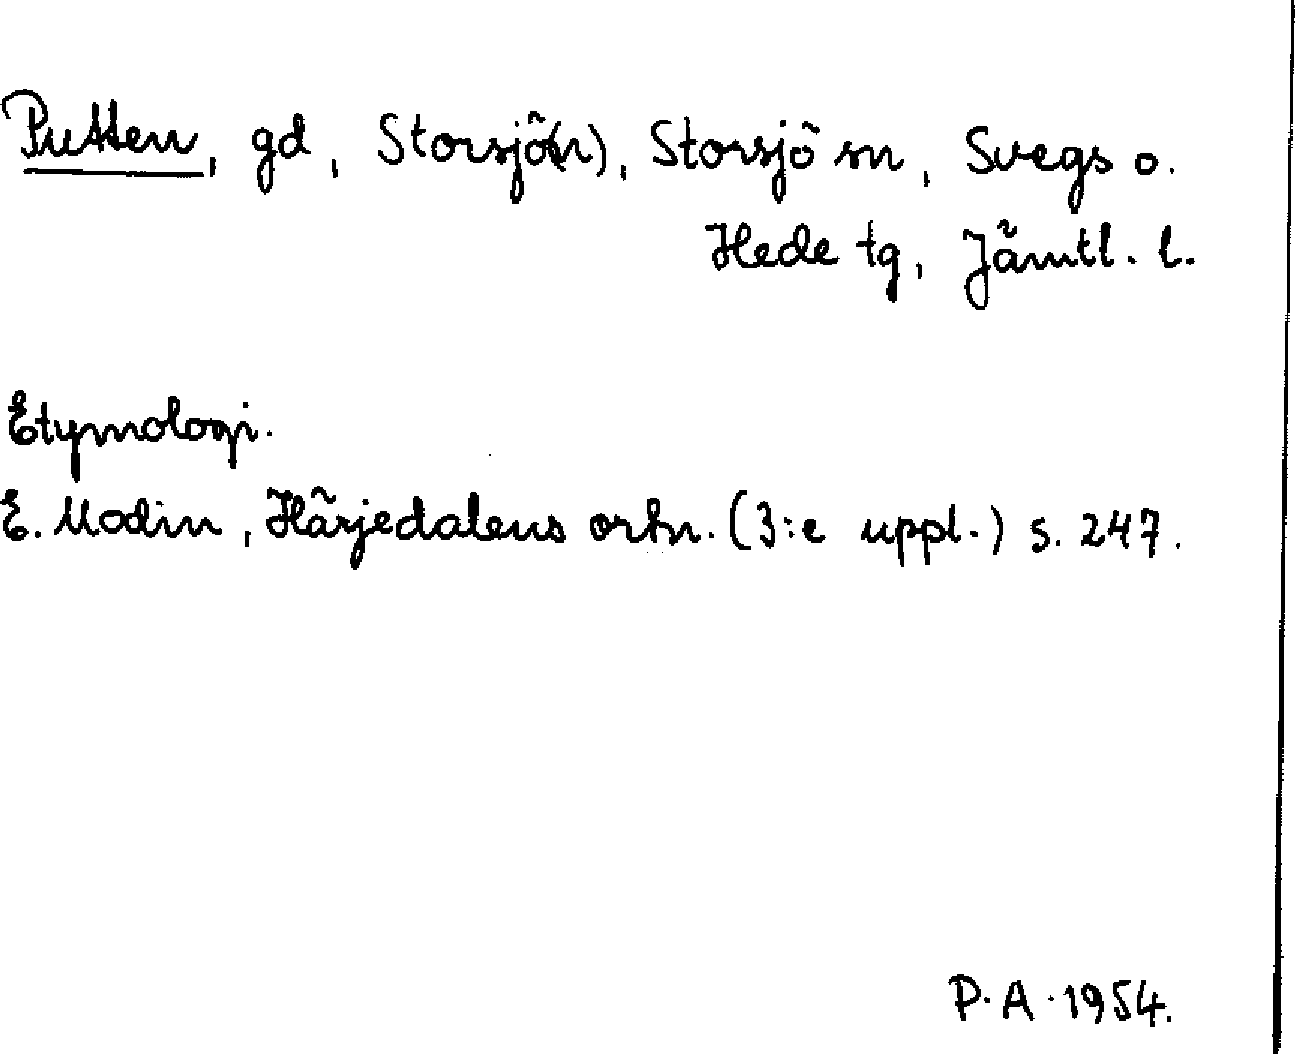 Putten, gd, Storsjö(n), Storsjö sn, Svegs o.
Hede tg, Jämtl. l.
Etymologi.
E. Modin, Härjedalens ortn. (3:e uppl.) s. 247.
P.A. 1954.